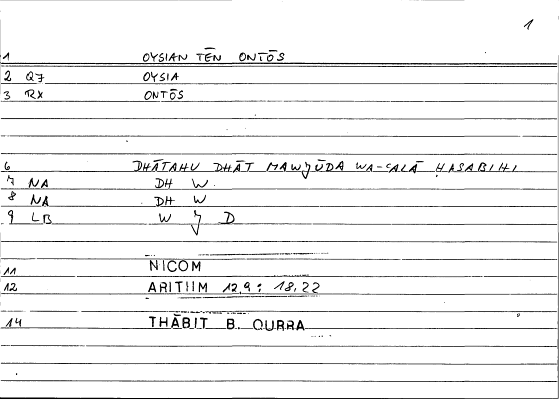 1
1 OYSIAN TĒN ONTŌS
2 Q7 OYSIA
3 RX ONTŌS
6 DHĀTAHU DHĀT MAWJŪDA WA-CALĀ HASABIHI
7 NA DH W
8 NA DH W
9 LB W J D
11 NICOM
12 ARITHM 12,9 : 18,22
14 THĀBIT B. QURRA